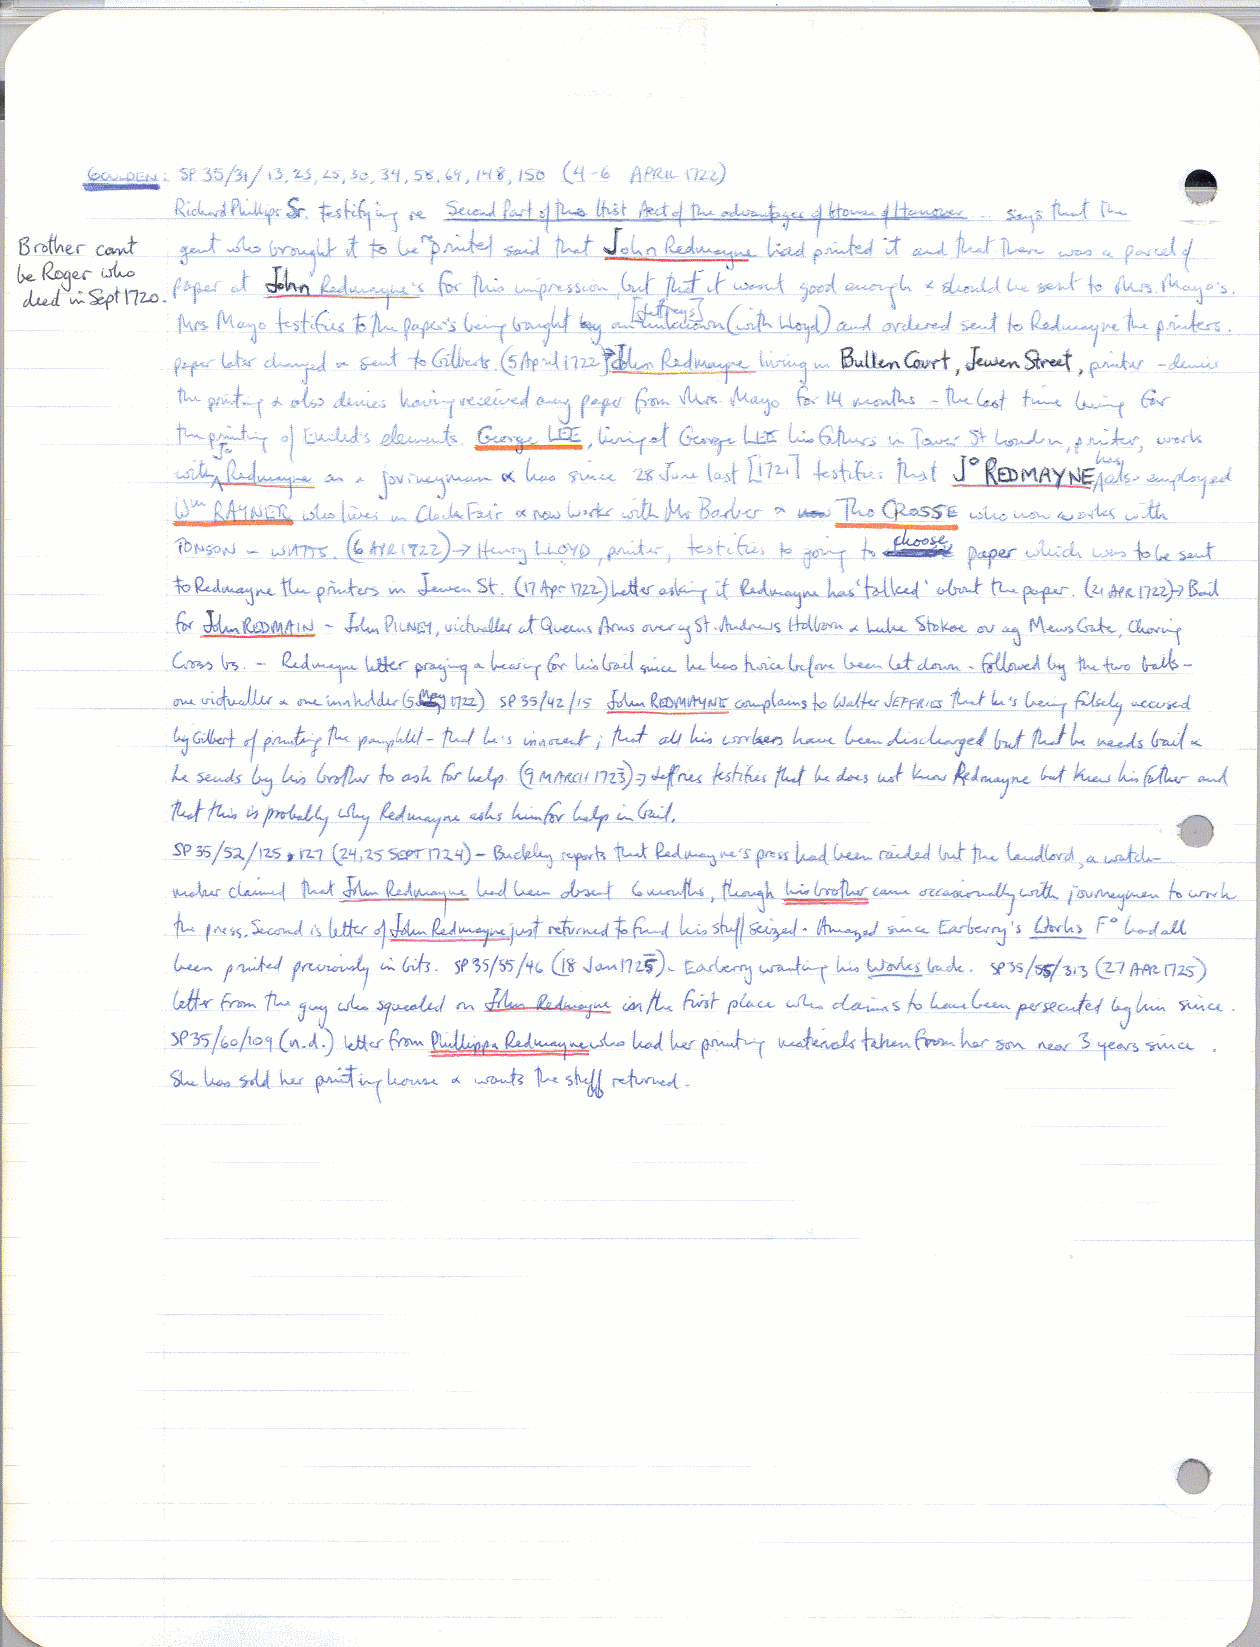 GOULDEN: SP 35/31/13, 23, 25, 30, 34, 58, 64, 148, 150 (4-6 APRIL 1722)
Richard Phillips Sr. testifying re Second Part of the Hist Acct of the advantages of House of Hanover ... says that the
gent who brought it to be printed said that John Redmayne had printed it and that there was a parcel of
Brother cant
be Roger who
died in Sept 1720.
paper at John Redmayne's for this impression, but that it wasnt good enough & should be sent to Mrs. Mayo's.
Mrs Mayo testifies to the paper's being bought by an unknown [Jeffreys] (with Lloyd) and ordered sent to Redmayne the printers.
paper later changed & sent to Gilberts. (5 April 1722) John Redmayne living in Bullen Court, Jewen Street, printer - denies
the printing & also denies having received any paper from Mrs. Mayo for 14 months - the last time being for
the printing of Euclid's elements. George LEE, living at George LEE his fathers in Tower St London, printer, works
with Jo Redmayne as a journeyman & has since 28 June last [1721] testifies that Jº REDMAYNE has also employed
Wm RAYNER who lives in Cloth Fair & now works with Mr Barber & Tho CROSSE who now works with
TONSON - WATTS. (6 APR 1722) → Henry LLOYD, printer, testifies to going to choose paper which was to be sent
to Redmayne the printers in Jewen St. (17 Apr 1722) Letter asking if Redmayne has 'talked' about the paper. (21 APR 1722) → Bail
for John REDMAIN - John PILNEY, victualler at Queens Arms over ag St. Andrews Holborn & Luke Stokoe ov ag Mews Gate, Charing
Cross bs. - Redmayne letter praying a hearing for his bail since he has twice before been let down - followed by the two bails -
one victualler & one innholder (5 May 1722) SP 35/42/15 John REDMAYNE complains to Walter JEFFRIES that he's being falsely accused
by Gilbert of printing the pamphlet - that he's innocent; that all his workers have been discharged but that he needs bail &
he sends by his brother to ask for help. (9 MARCH 1723) → Jeffries testifies that he does not know Redmayne but knew his father and
that this is probably why Redmayne asks him for help in bail.
SP 35/52/125, 127 (24, 25 SEPT 1724) - Buckley reports that Redmayne's press had been raided but the landlord, a watch-
maker claimed that John Redmayne had been absent 6 months, though his brother came occasionally with journeymen to work
the press. Second is letter of John Redmayne just returned to find his stuff seized. Amazed since Earberry's Works Fº had all
been printed previously in bits. SP 35/55/46 (18 Jan 1725). Earberry wanting his Works back. SP 35/55/313 (27 APR 1725)
letter from the guy who squealed on John Redmayne in the first place who claims to have been persecuted by him since.
SP 35/60/109 (n.d.) letter from Phillippa Redmayne who had her printing materials taken from her son near 3 years since.
She has sold her printing house & wants the stuff returned.